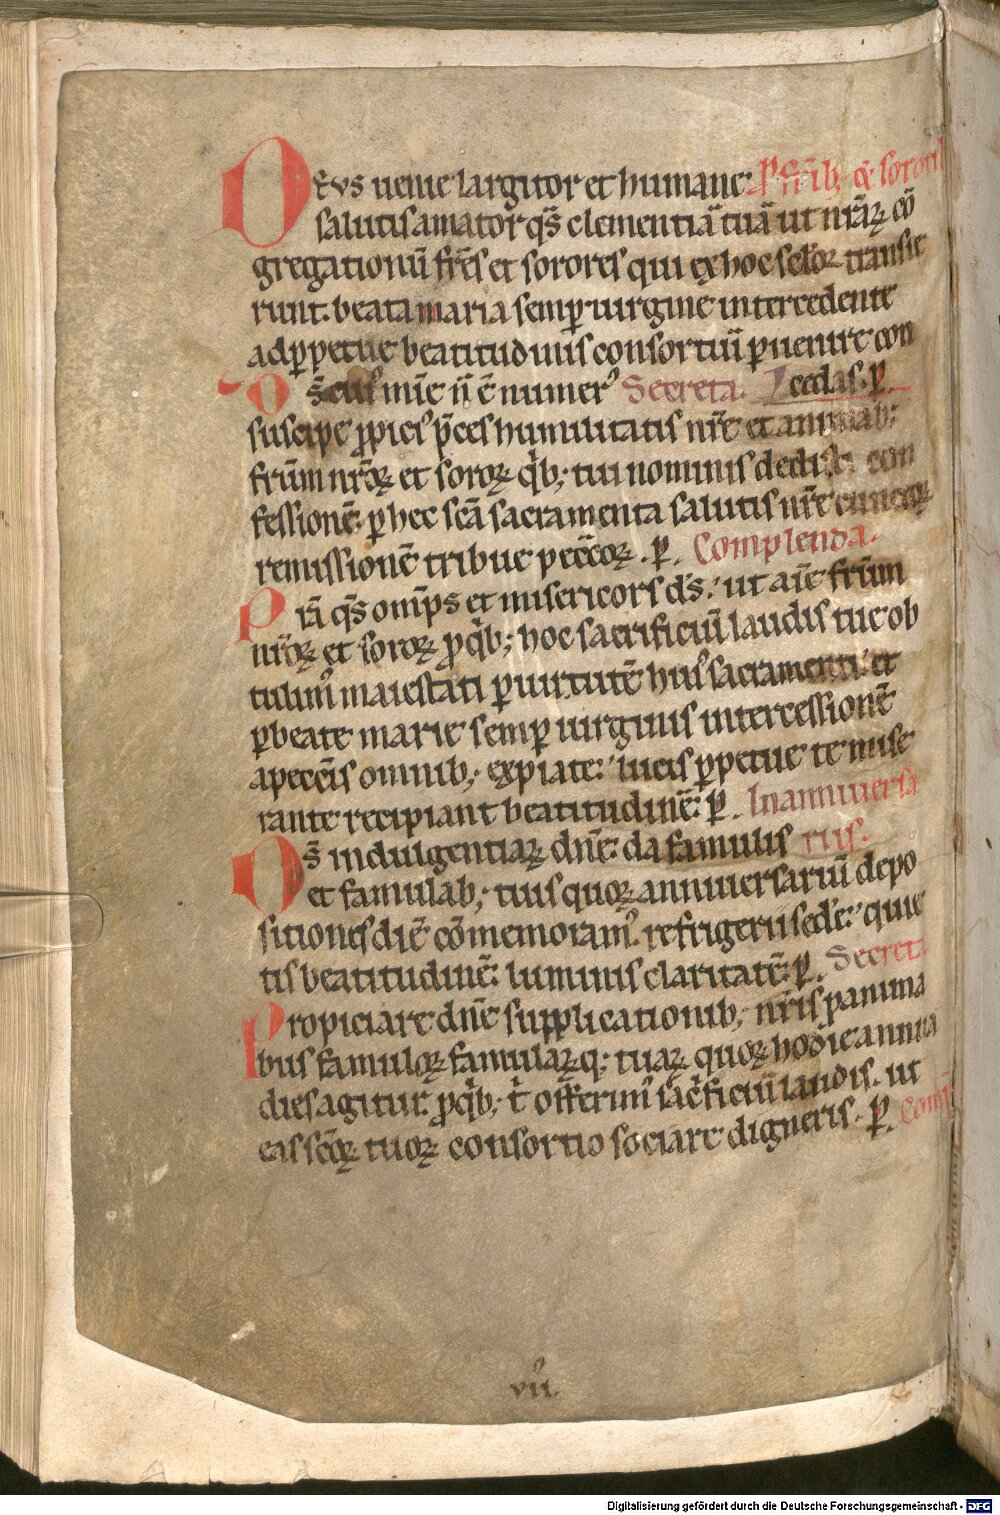 Deus uenie largitor et humane Pro fr̄ib; & sororib
salutis amator qs̄ clementiā tuā ut nrāꝝ cō
gregationū frēs et sorores qui ex hoc scłoꝝ transie
runt. beata maria semꝑ uirgine intercedente
ad ꝑpetue beatitudinis consortiū ꝑuenire con
Ds̄ cui᾽ mīe n̄ ē numer᾽ Secreta. cedas. ꝑ.
suscipe ꝓpici᾽ p̄ces humilitatis nrē et animab;
frūm nrōꝝ et soroꝝ qͥb; tui nominis dedisti con
fessionē. ꝑ hec scā sacramenta salutis nrē cunctoꝝ
remissionē tribue peccōꝝ. ꝑ. Complenda.
Prā qs̄ om̄ps et misericors ds̄. ut aīe frūm
nrōꝝ et soroꝝ ꝓ qͥb; hoc sacrificiū laudis tue ob
tulim᾽ maiestati ꝑ uirtutē hui᾽ sacramenti. et
ꝑ beate marie semꝑ uirginis intercessionē
a peccīs omnib; expiate. lucis ꝑpetue te mise
rante recipiant beatitudinē. ꝑ. In anniuersa
Ds̄ indulgentiaꝝ dnē. da famulis riis.
et famulab; tuis quoꝝ anniuersariū depo
sitionis diē cōmemoram᾽. refrigerii sedē. quie
tis beatitudinē. luminis claritatē. ꝑ. Secreta
Propiciare dnē supplicationib; nrīs ꝓ anima
bus famuloꝝ famularꝝq; tuaꝝ quoꝝ hodie annua
dies agitur. ꝓ qͥb; t̄ offerim᾽ sacͥficiū laudis. ut
eas scōꝝ tuoꝝ consortio sociare digneris. ꝑ. Compł
vii᾽.
Digitalisierung gefördert durch die Deutsche Forschungsgemeinschaft - DFG